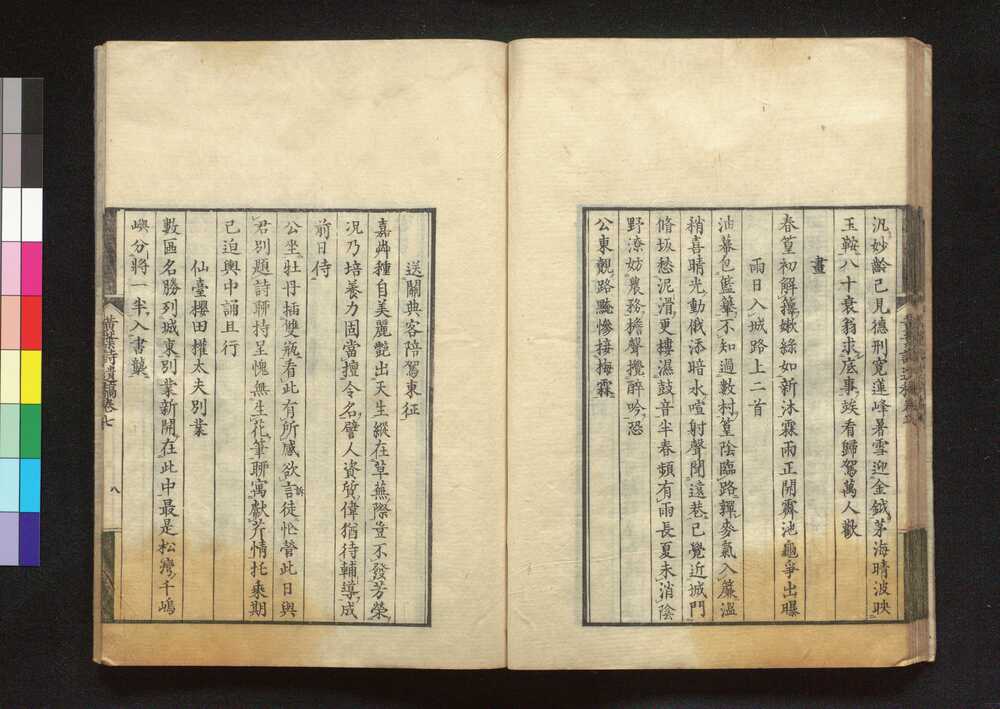 汎妙齡已見德刑寛蓮峰暑雪迎金鉞茅海晴波映
玉鞍八十衰翁求底事竢看歸駕萬人歡
畫
春篁初解籜嫰綠如新沐霖雨正開霽池龜爭出曝
雨日入城路上二首
油幕包籃轝不知過數村篁陰臨路䆁麥氣入簾溫
稍喜晴光動俄添暗水喧射聲聞遠巷已覺近城門
脩坂愁泥滑更樓濕鼓音半春頻有雨長夏未消陰
野潦妨農務檐聲攪醉吟恐
公東覲路黯慘接梅霖
送關典客陪駕東征
嘉卉種自美麗艷出天生縱在草蕪際豈不發芳榮
况乃培養力固當擅令名譬人資質偉猶待輔導成
前日侍
公坐牡丹插雙瓶看此有所感欲言訴徒忙管此日與
君別題詩聊持呈愧無生花筆聊寓獻芹情托乘期
已迫輿中誦且行
仙臺櫻田權太夫別業
數區名勝列城東別業新開在此中最是松灣千嶋
嶼分將一半入書龑
黄葉詩遺稿卷七
八